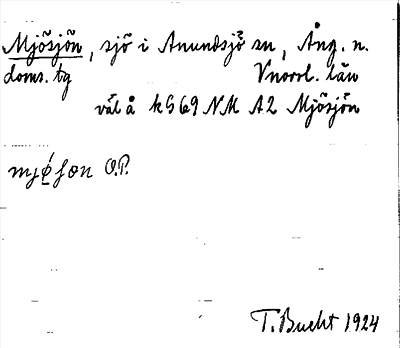 Mjösjön, sjö i Anundsjö sn, Ång. n.
doms. tg Vnorrl. län
väl å kG69 NM A2 Mjösjön
O.P.
T. Bucht 1924